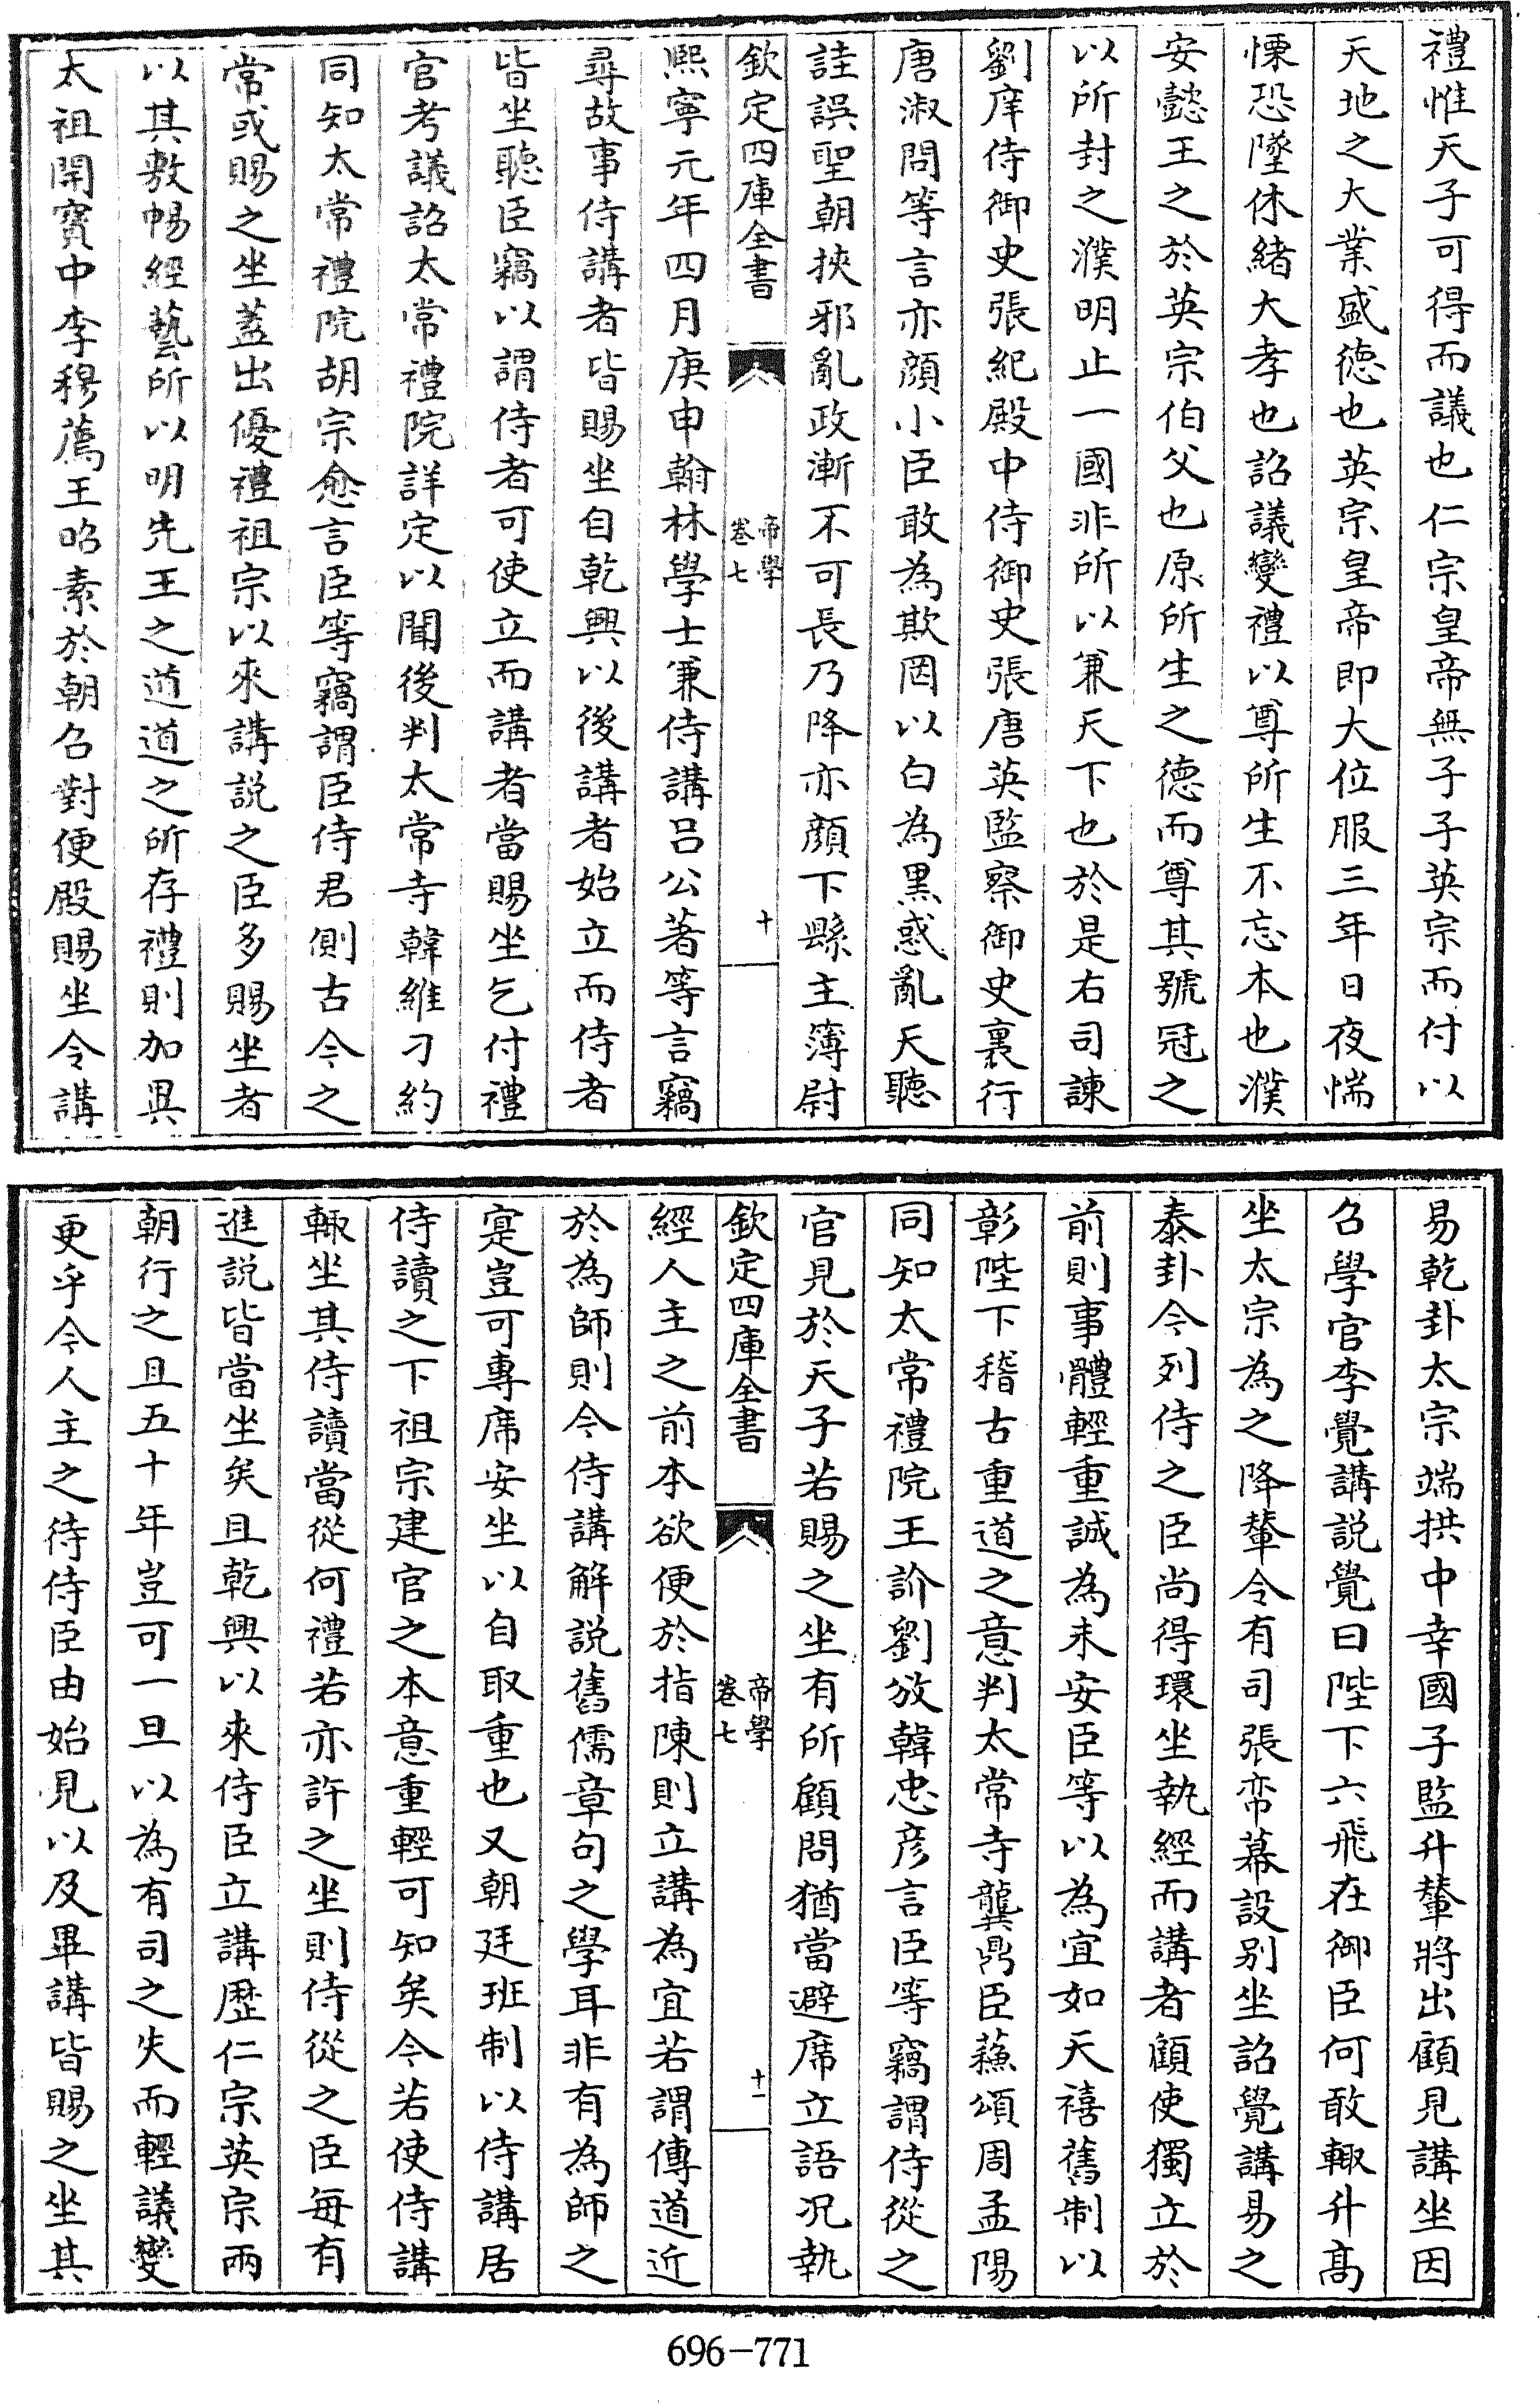 禮惟天子可得而議也仁宗皇帝無子子英宗而付以
天地之大業盛德也英宗皇帝即大位服三年日夜惴
慄恐墜休緒大孝也詔議變禮以尊所生不忘本也濮
安懿王之於英宗伯父也原所生之德而尊其號冠之
以所封之濮明止一國非所以兼天下也於是右司諫
劉庠侍御史張紀殿中侍御史張唐英監察御史裏行
唐淑問等言亦顔小臣敢為欺罔以白為黑惑亂天聽
詿誤聖朝挾邪亂政漸不可長乃降亦顔下縣主簿尉
欽定四庫全書
帝學
卷七
十
熙寧元年四月庚申翰林學士兼侍講吕公著等言竊
尋故事侍講者皆賜坐自乾興以後講者始立而侍者
皆坐聽臣竊以謂侍者可使立而講者當賜坐乞付禮
官考議詔太常禮院詳定以聞後判太常寺韓維刁約
同知太常禮院胡宗愈言臣等竊謂臣侍君側古今之
常或賜之坐葢出優禮祖宗以來講説之臣多賜坐者
以其敷暢經藝所以明先王之道道之所存禮則加異
太祖開寳中李穆薦王昭素於朝召對便殿賜坐令講
易乾卦太宗端拱中幸國子監升輦將出顧見講坐因
召學官李覺講説覺曰陛下六飛在御臣何敢輙升髙
坐太宗為之降輦令有司張帟幕設别坐詔覺講易之
泰卦令列侍之臣尚得環坐執經而講者顧使獨立於
前則事體輕重誠為未安臣等以為宜如天禧舊制以
彰陛下稽古重道之意判太常寺龔鼎臣蘇頌周孟陽
同知太常禮院王訃劉攽韓忠彦言臣等竊謂侍從之
官見於天子若賜之坐有所顧問猶當避席立語况執
欽定四庫全書
帝學
卷七
十一
經人主之前本欲便於指陳則立講為宜若謂傳道近
於為師則今侍講解説舊儒章句之學耳非有為師之
寔豈可專席安坐以自取重也又朝廷班制以侍講居
侍讀之下祖宗建官之本意重輕可知矣今若使侍講
輙坐其侍讀當從何禮若亦許之坐則侍從之臣每有
進説皆當坐矣且乾興以來侍臣立講歴仁宗英宗兩
朝行之且五十年豈可一旦以為有司之失而輕議變
更乎今人主之待侍臣由始見以及畢講皆賜之坐其
696-771